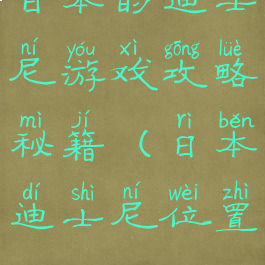 日本的迪士
ní yóu xì gōng lüè
尼游戏攻略
mì jí rì běn
秘籍(日本
dí shì ní wèi zhì
迪士尼位置